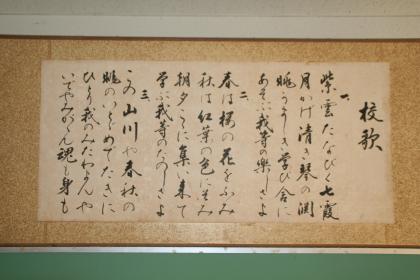 校歌
一、
紫雲たなびく七霞
月かげ清き琴の渕
眺うるはしき学び舎に
あそぶ我等の楽しさよ
二、
春は桜の花をふみ
秋は紅葉の色にそみ
朝夕こゝに集い来て
学ぶ我等のたのしさよ
三、
この山川や春秋の
眺のいとめでたきに
ひとり我のみたわまんや
いでやみがかん魂も身も